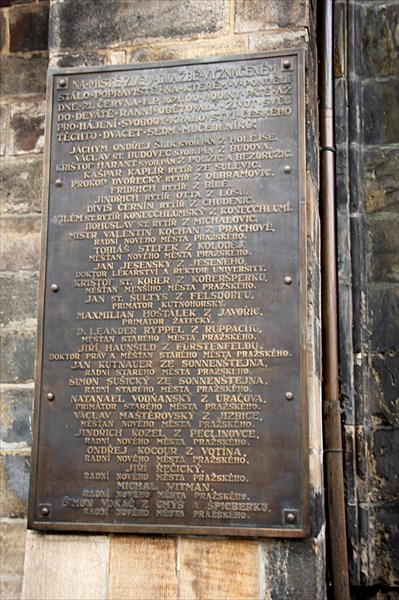 NA MÍSTĚ ZDE V DLAŽBĚ VYZNAČENÉM
STÁLO POPRAVIŠTĚ, NA KTERÉM V PONDĚLÍ
DNE 21. ČERVNA L.P. 1621 OD
DO DEVÁTÉ RANNÍ OBĚTOVALO ŽIVOT SVŮJ
PRO HÁJENÍ SVOBODY KRÁLOVSTVÍ ČESKÉHO
TĚCHTO DVACET SEDM MUČEDLNÍKŮ:
JÁCHYM ONDŘEJ ŠLIK SVOB. PÁN Z HOLEJŠE,
VÁCLAV ST. BUDOVEC SVOB. PÁN Z BUDOVA,
KRIŠTOF HARANT SVOB. PÁN Z POLŽIC A BEZDRUŽIC,
KAŠPAR KAPLÍŘ RYTÍŘ ZE SULEVIC,
PROKOP DVOŘECKÝ RYTÍŘ Z OLBRAMOVIC,
FRIDRICH RYTÍŘ Z BÍLÉ,
JINDRICH RYTÍŘ OTTA Z LOSU,
DIVIŠ ČERNÍN RYTÍŘ Z CHUDENIC,
VILÉM ST. RYTÍŘ KONECCHLUMSKÝ Z KONECCHLUMÍ,
BOHUSLAV ST. RYTÍŘ Z MICHALOVIC,
MISTR VALENTIN KOCHAN Z PRACHOVÉ,
RADNÍ NOVÉHO MĚSTA PRAŽSKÉHO,
TOBIÁŠ ŠTEFEK Z KOLODĚJ,
MĚŠŤAN NOVÉHO MĚSTA PRAŽSKÉHO,
JAN JESENSKÝ Z JESENÉHO,
DOKTOR LÉKAŘSTVÍ A REKTOR UNIVERSITY,
KRIŠTOF ST. KOBER Z KOBERŠPERKU,
MĚŠŤAN MENŠÍHO MĚSTA PRAŽSKÉHO,
JAN ST. ŠULTYS Z FELSDORFU,
PRIMÁTOR KUTNOHORSKÝ,
MAXMILIAN HOŠŤÁLEK Z JAVOŘIC,
PRIMÁTOR ŽATECKÝ,
D. LEANDER RYPPEL Z RUPPACHU,
MĚŠŤAN STARÉHO MĚSTA PRAŽSKÉHO,
JIŘÍ HAUNŠILD Z FÜRSTENFELDU,
DOKTOR PRÁV A MĚŠŤAN STARÉHO MĚSTA PRAŽSKÉHO,
JAN KUTNAUER ZE SONNENŠTEJNA,
RADNÍ STARÉHO MĚSTA PRAŽSKÉHO,
ŠIMON SUŠICKÝ ZE SONNENŠTEJNA,
RADNÍ STARÉHO MĚSTA PRAŽSKÉHO,
NATANAEL VODŇANSKÝ Z URAČOVA,
PRIMÁTOR STARÉHO MĚSTA PRAŽSKÉHO,
VÁCLAV MAŠTĚROVSKÝ Z JIZBICE,
MĚŠŤAN NOVÉHO MĚSTA PRAŽSKÉHO,
JINDRICH KOZEL Z PECLINOVCE,
RADNÍ NOVÉHO MĚSTA PRAŽSKÉHO,
ONDŘEJ KOCOUR Z VOTÍNA,
RADNÍ NOVÉHO MĚSTA PRAŽSKÉHO,
JIŘÍ ŘEČICKÝ,
RADNÍ NOVÉHO MĚSTA PRAŽSKÉHO,
MICHAL WITMAN,
RADNÍ NOVÉHO MĚSTA PRAŽSKÉHO,
ŠIMON VOKÁČ Z CHYŠ A ŠPICBERKU,
RADNÍ NOVÉHO MĚSTA PRAŽSKÉHO.